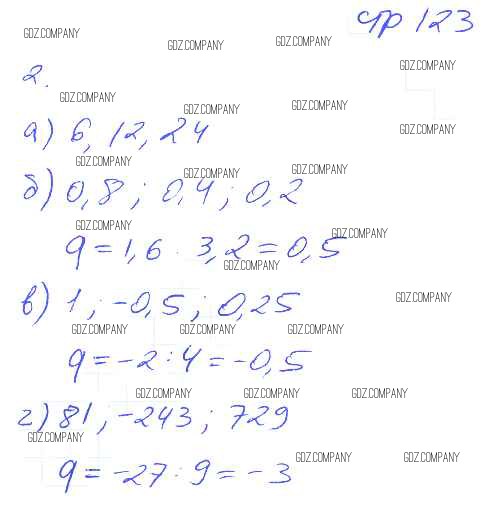 стр 123
GDZ.COMPANY GDZ.COMPANY GDZ.COMPANY
2. GDZ.COMPANY
GDZ.COMPANY GDZ.COMPANY GDZ.COMPANY
а) 6, 12, 24 GDZ.COMPANY
GDZ.COMPANY GDZ.COMPANY GDZ.COMPANY
б) 0,8 ; 0,4 ; 0,2
GDZ.COMPANY GDZ.COMPANY
q = 1,6 : 3,2 = 0,5
GDZ.COMPANY
в) 1 ; -0,5 ; 0,25 GDZ.COMPANY
GDZ.COMPANY GDZ.COMPANY GDZ.COMPANY
q = -2 : 4 = -0,5
GDZ.COMPANY GDZ.COMPANY GDZ.COMPANY
г) 81 ; -243 ; 729
GDZ.COMPANY
q = -27 : 9 = -3
GDZ.COMPANY GDZ.COMPANY